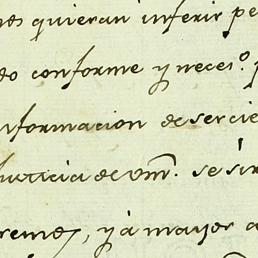 quieran inferir pe
do conforme y neces.º p
nformacion de ser cie
Justicia de Vm. se sir
, y a mayor a